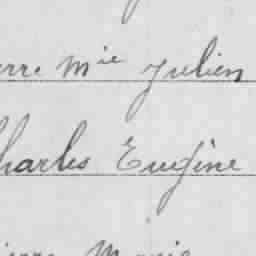 erre Mie Julien
harles Eugène
ierre Marie